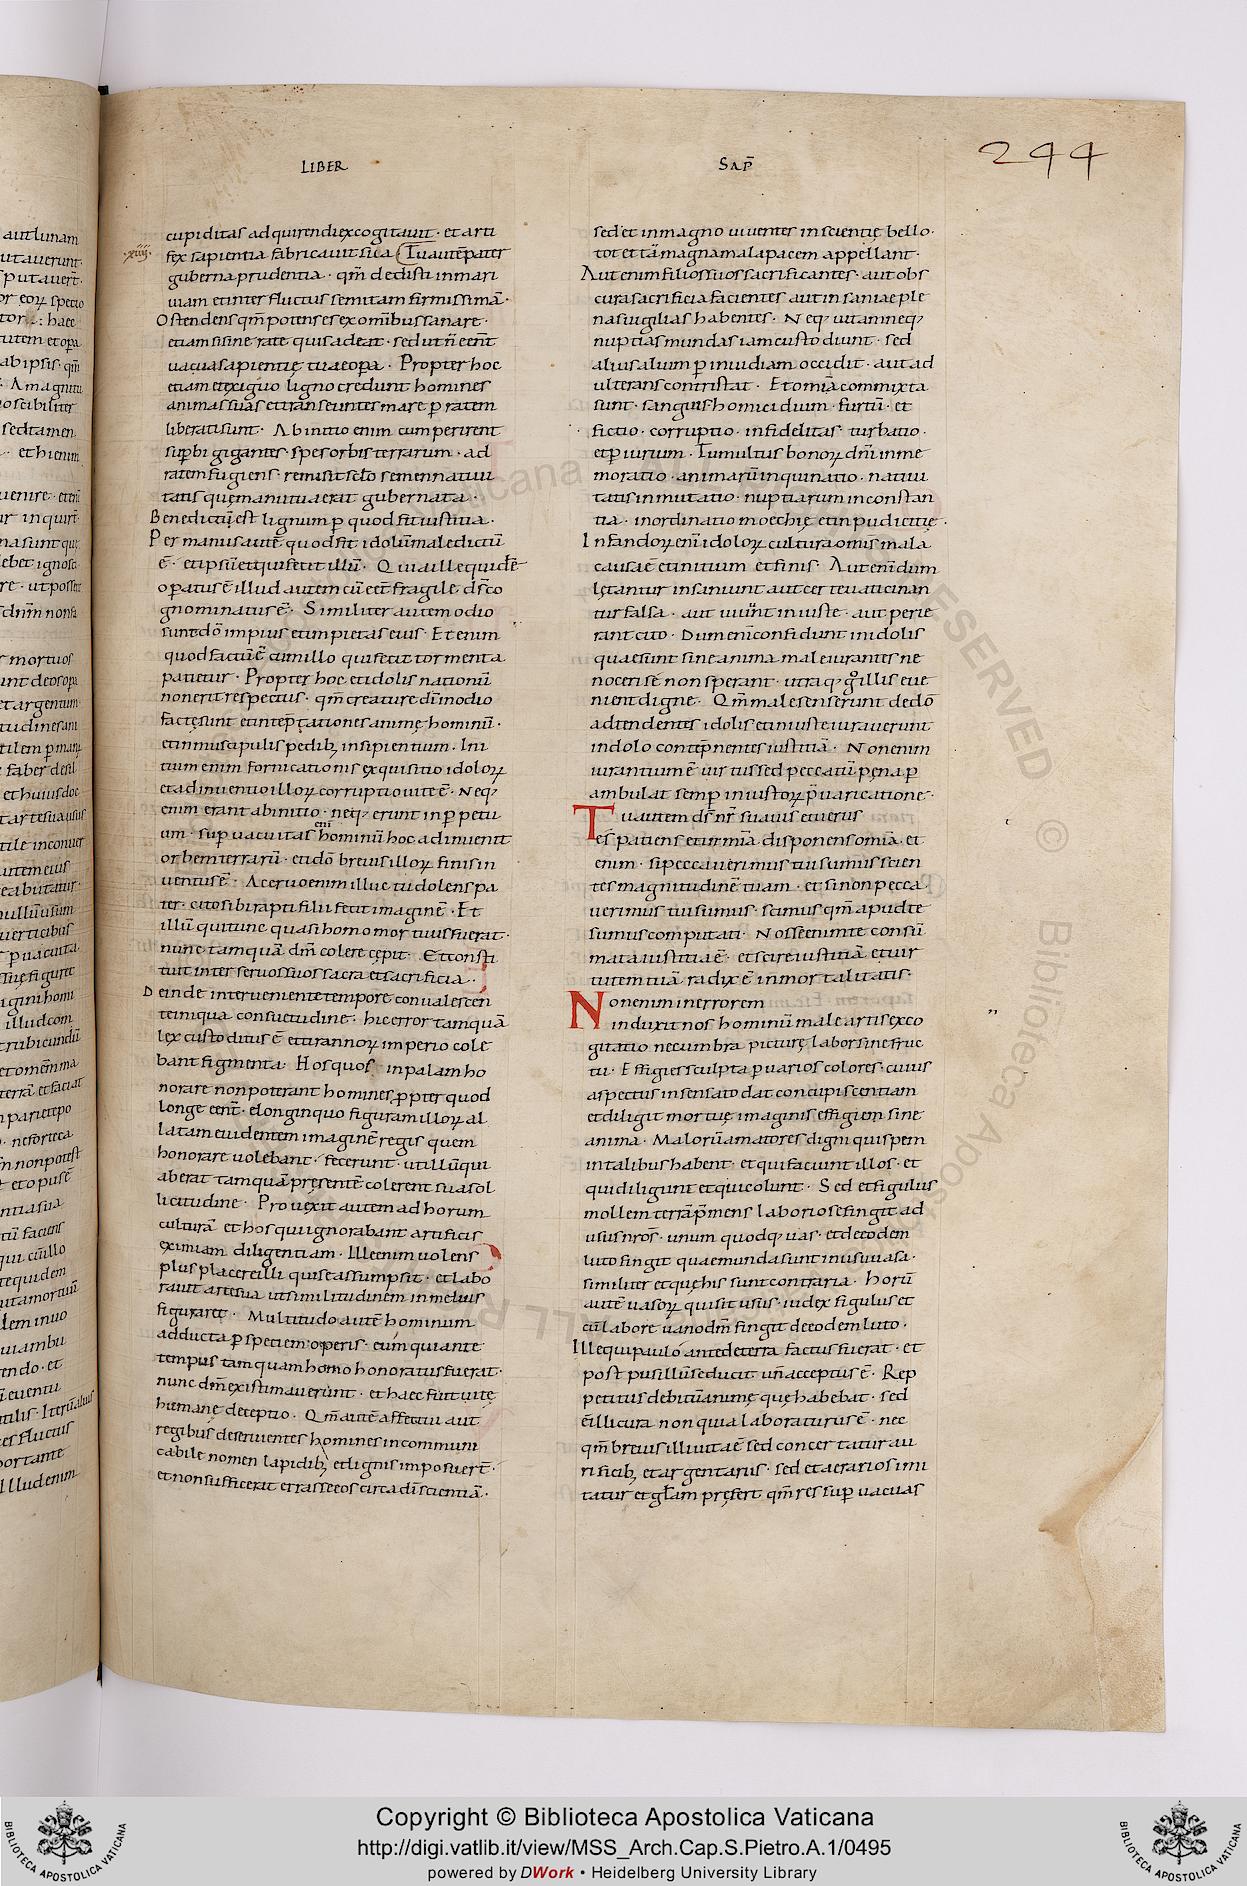 LIBER
SAP̄
244
cupiditas adquirendi excogitauit · et arti
·xiiii·
fex sapientia fabricauit sua Tu autē pater
gubernas prudentia · qm̄ dedisti in mari
uiam et inter fluctus semitam firmissimā ·
Ostendens qm̄ potens es ex omībus sanare ·
etiam si sine rate quis adeat · sed ut n̄ eent̄
uacua sapientię tuae opa · Propter hoc
etiam et exiguo ligno credunt homines
animas suas et transeuntes mare ꝑ ratem
liberati sunt · Ab initio enim cum perirent
suꝑbi gigantes · spes orbis terrarum · ad
ratem fugiens · remisit sclo semen natiui
tatis quę manu tua erat gubernata ·
Benedictū est lignum ꝑ quod fit iustitia ·
Per manus autē quod fit idolū maledictū
ē · et ipsū et qui fecit illū · Quia ille quidē
oꝑatus ē illud autem cū eēt fragile · ds̄ co
gnominatus ē · Similiter autem odio
sunt dō impius et impietas eius · Et enim
quod factū ē cum illo qui fecit tormenta
patietur · Propter hoc et idolis nationū
non erit respectus · qm̄ creature dī in odio
factę sunt et in teptationes animę hominū ·
et in muscipulis pedibꝫ insipientium · Ini
tium enim fornicationis exquisitio idoloꝝ
et adinuentio illoꝝ corruptio uitę ē · Neqꝫ
enim erant ab initio · neqꝫ erunt in ꝑpetu
um · Suꝑuacuitas enī hominū hoc aduenit
orbem terrarū · et idō breuis illoꝝ finis in
uentus ē · Acerbo enim luctu dolens pa
ter · cito sibi rapti filii fecit imaginē · Et
illū qui tunc quasi homo mortuus fuerat ·
nunc tamquā dm̄ colere cępit · Et consti
tuit inter seruos suos sacra et sacrificia ·
Deinde interueniente tempore conualescen
te iniqua consuetudine · hic error tamquā
lex custoditus ē et tirannoꝝ imperio cole
bant figmenta · Hos quos in palam ho
norare non poterant homines ꝓpter quod
longe eent̄ · e longinquo figuram illoꝝ al
latam euidentem imaginē regis quem
honorare uolebant · fecerunt · ut illū qui
aberat tamquā presentē colerent sua sol
licitudine · Prouexit autem ad horum
culturā et hos qui ignorabant artificis
eximiam diligentiam · Ille enim uolens
plus placere illi qui se assumpsit · et labo
rauit arte sua ut similitudinem in melius
figuraret · Multitudo autē hominum
adducta ꝑ speciem operis · eum qui ante
tempus tamquam homo honoratus fuerat ·
nunc dm̄ existimauerunt · et haec fuit uitę
humanę deceptio · Qm̄ autē affectui aut
regibus deseruientes homines incommuni
cabile nomen lapidibꝫ et lignis imposuert̄ ·
et non sufficerat errasse eos circa dī scientiā ·
sed et in magno uiuentes inscientię bello ·
tot et tā magna mala pacem appellant ·
Aut enim filios suos sacrificantes · aut obs
cura sacrificia facientes aut insaniae ple
nas uigilias habentes · Neqꝫ uitam neqꝫ
nuptias mundas iam custodiunt · sed
alius alium ꝑ inuidiam occidit · aut ad
ulterans contristat · Et omīa commixta
sunt · sanguis · homicidium · furtū · et
fictio · corruptio · infidelitas · turbatio ·
et ꝑiurium · Tumultus bonoꝝ dn̄i inme
moratio · animarū inquinatio · natiui
tatis inmutatio · nuptiarum inconstan
tia · inordinatio moechię et inpudicitię ·
Infandoꝝ enī idoloꝝ cultura omīs mala
causa ē et initium et finis · Aut enī dum
lętantur insaniunt aut certe uaticinan
tur falsa · aut uiuunt iniuste · aut peie
rant cito · Dum enī confidunt in idolis
quae sunt sine anima male iurantes ne
noceri sē non sperant · utraqꝫ gͦ illis eue
nient digne · Qm̄ male senserunt de dō
adtendentes idolis et iniuste iurauerunt
in dolo contēpnentes iustitiā · Non enim
iurantium ē uirtus sed peccatū pęna ꝑ
ambulat semꝑ iniustoꝝ p̄uaricatione ·
Tu autem ds̄ nr̄ suauis et uerus
es patiens et in mīa disponens omīa · et
enim · si peccauerimus tui sumus scien
tes magnitudinē tuam · et si non pecca
uerimus tui sumus · scimus qm̄ apud te
sumus computati · Nosse enim te consū
mata iustitia ē · et scire iustitiā et uir
tutem tuā radix ē inmortalitatis ·
Non enim in errorem
induxit nos hominū male artis exco
gitatio nec umbra picturę labor sine fruc
tu · Effigies sculpta ꝑ uarios colores · cuius
aspectus insensato dat concupiscentiam
et diligit mortuę imaginis effigiem sine
anima · Malorū amatores digni qui spem
in talibus habent · et qui faciunt illos · et
qui diligunt et qui colunt · Sed et figulus
mollem terrā p̄mens laboriose fingit ad
usus nr̄os · unum quodqꝫ uas · et de eodem
luto fingit quae munda sunt in usu uasa ·
similiter et quę his sunt contraria · Horū
autē uasoꝝ qui sit usus · iudex figulus et
cū labore uano dm̄ fingit de eodem luto ·
Ille qui paulo ante de terra factus fuerat · et
post pusillū se ducit un̄ acceptus ē · Rep
petitus debitū animę que habebat · sed
ē illi cura non quia laboraturus ē · nec
qm̄ breuis illi uita ē sed concertatur au
rificibꝫ et argentariis · sed et aerarios imi
tatur et gl̄am pręfert qm̄ res suꝑuacuas
Copyright © Biblioteca Apostolica Vaticana
http://digi.vatlib.it/view/MSS_Arch.Cap.S.Pietro.A.1/0495
powered by DWork • Heidelberg University Library